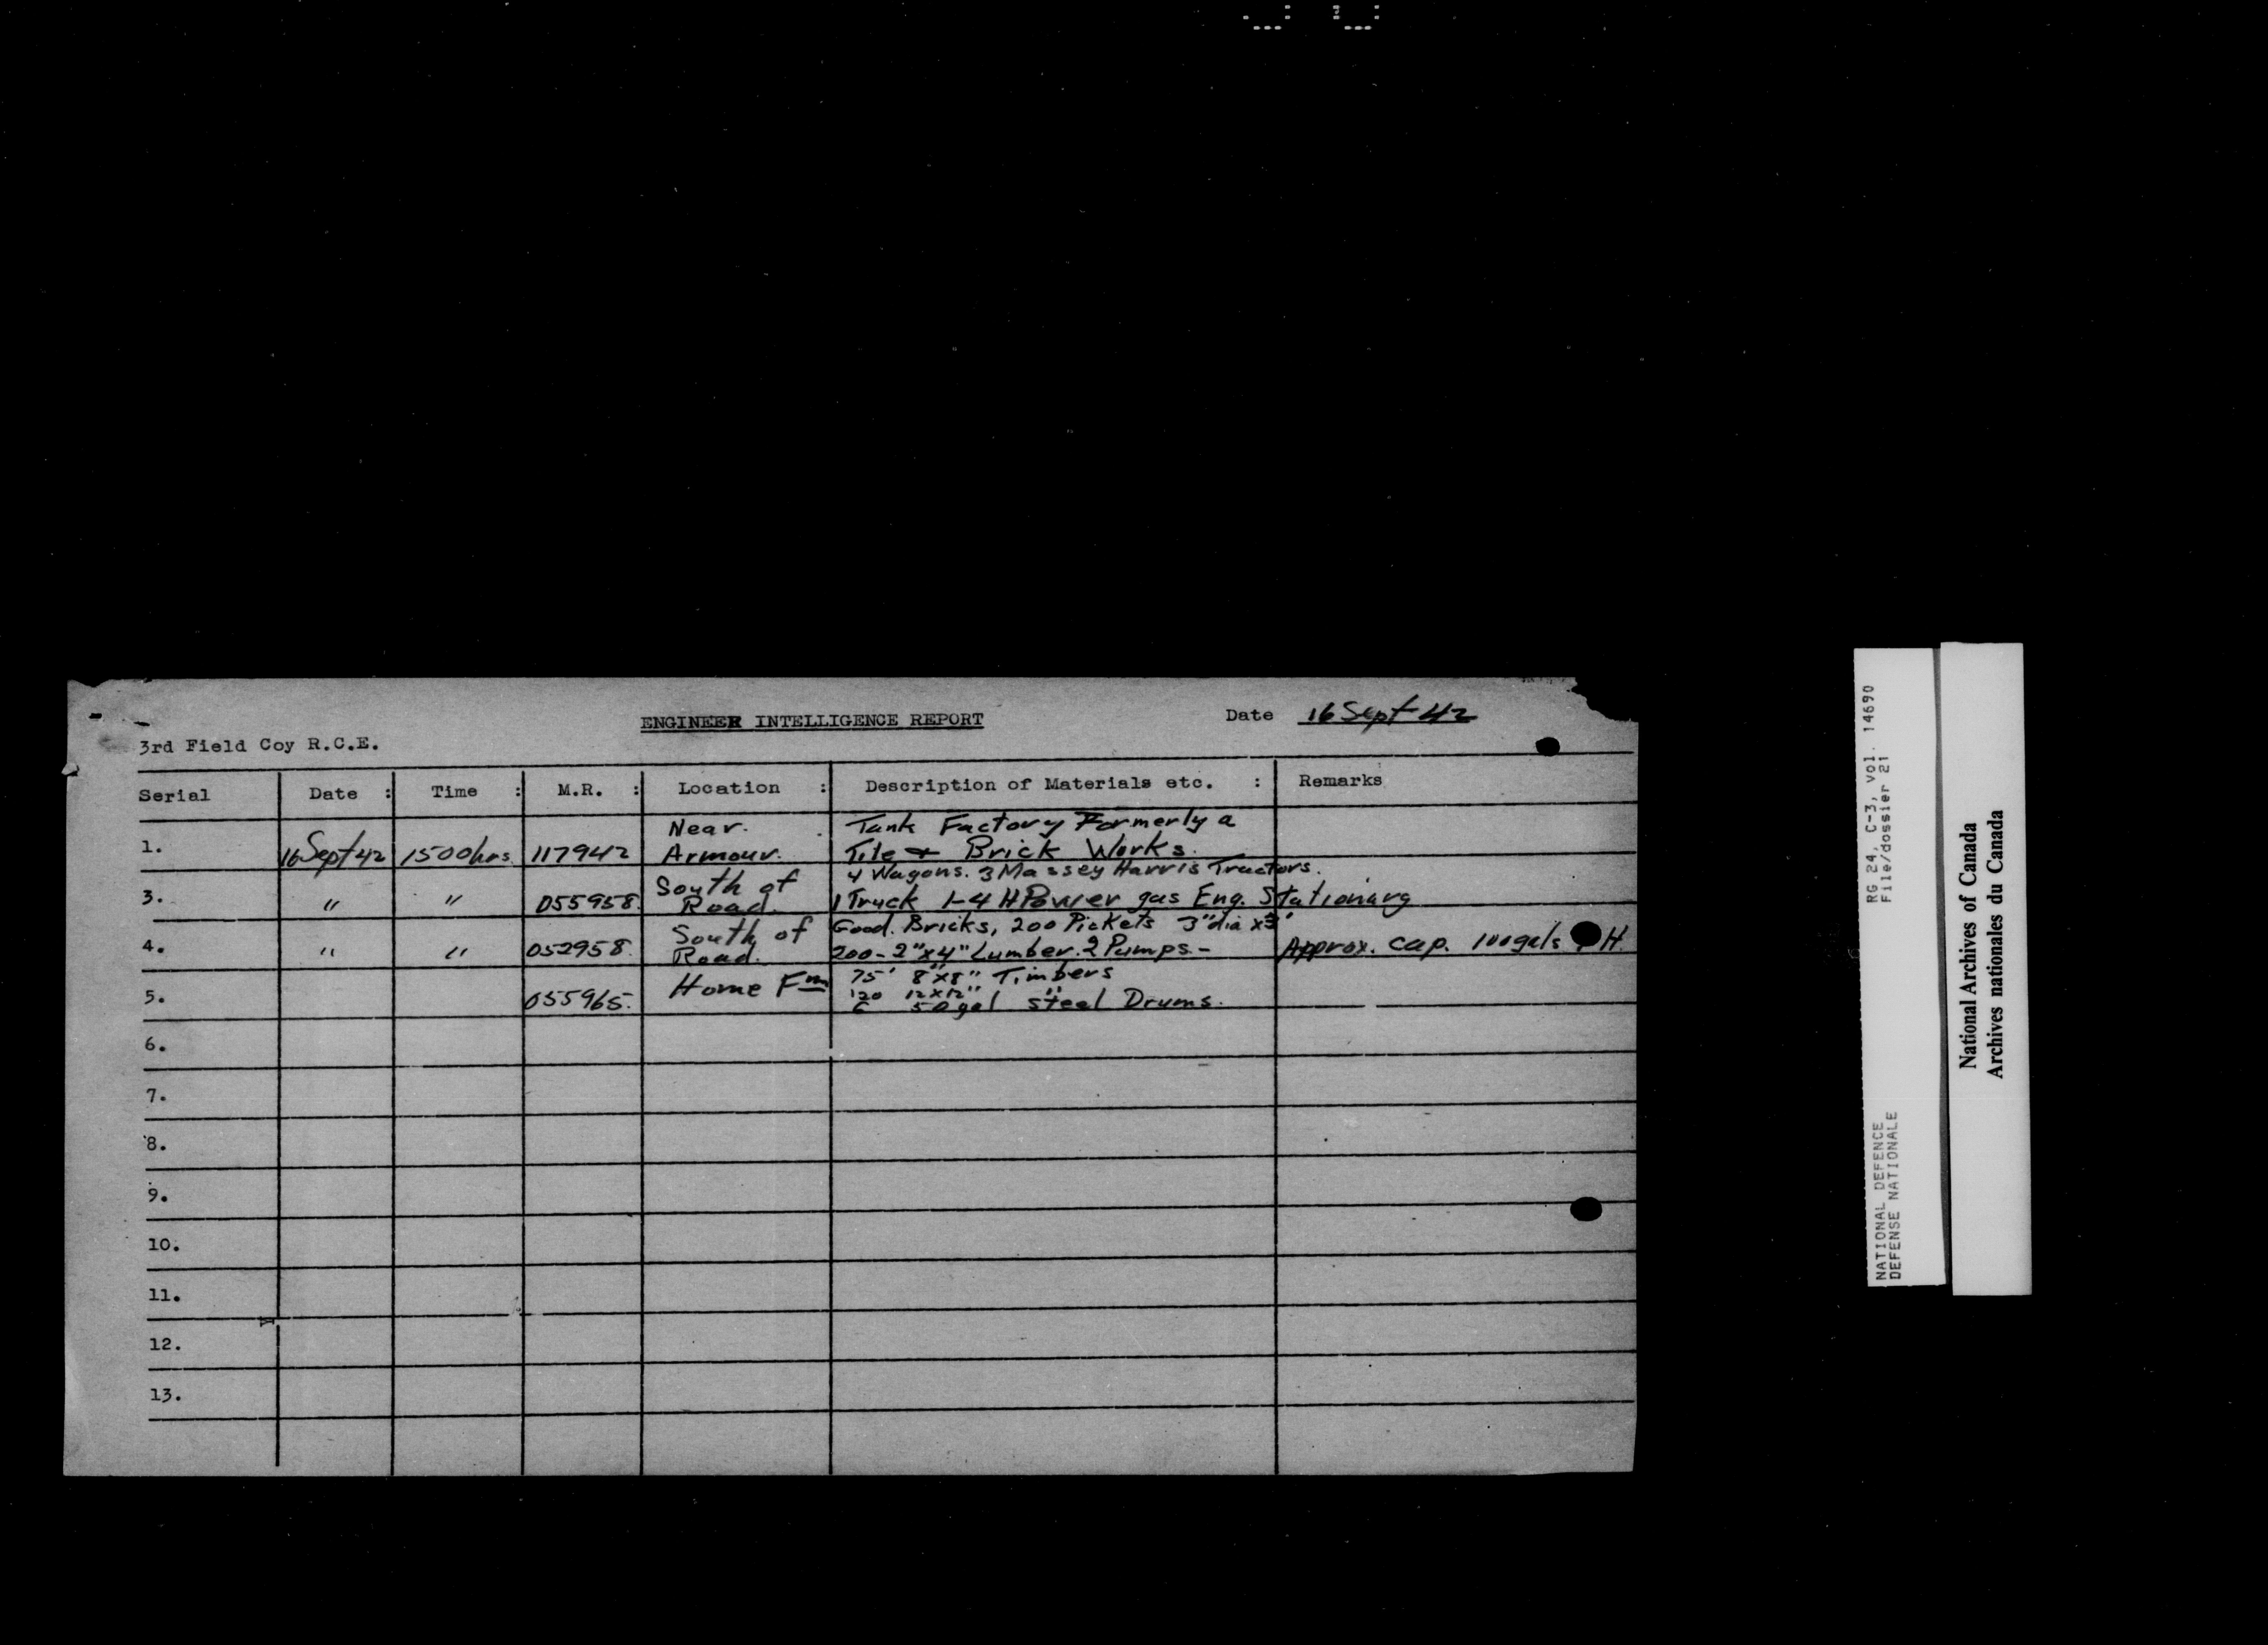 ENGINEER INTELLIGENCE REPORT Date 16 Sept 42
3rd Field Coy R.C.E.
Serial Date : Time : M.R. : Location : Description of Materials etc. : Remarks
Near. Tank Factory Formerly a
1. 16 Sept 42 1500 hrs. 117942 Armour. Tile + Brick Works.
South of 4 Wagons. 3 Massey Harris Tractors.
3. " " 055958. Road. 1 Truck 1-4 H Power gas Eng. Stationary
South of Good. Bricks, 200 Pickets 3" dia x 3'
4. " " 052958. Road. 200 - 2" x 4" Lumber. 2 Pumps - Approx. cap. 100 gals H.
Home Fm 75' 8" x 8" Timbers
120 12 x 12" "
5. 055965. 6 50 gal steel Drums.
6.
7.
8.
9.
10.
11.
12.
13.
NATIONAL DEFENCE RG 24, C-3, vol. 14690
DEFENSE NATIONALE File/dossier 21
National Archives of Canada
Archives nationales du Canada